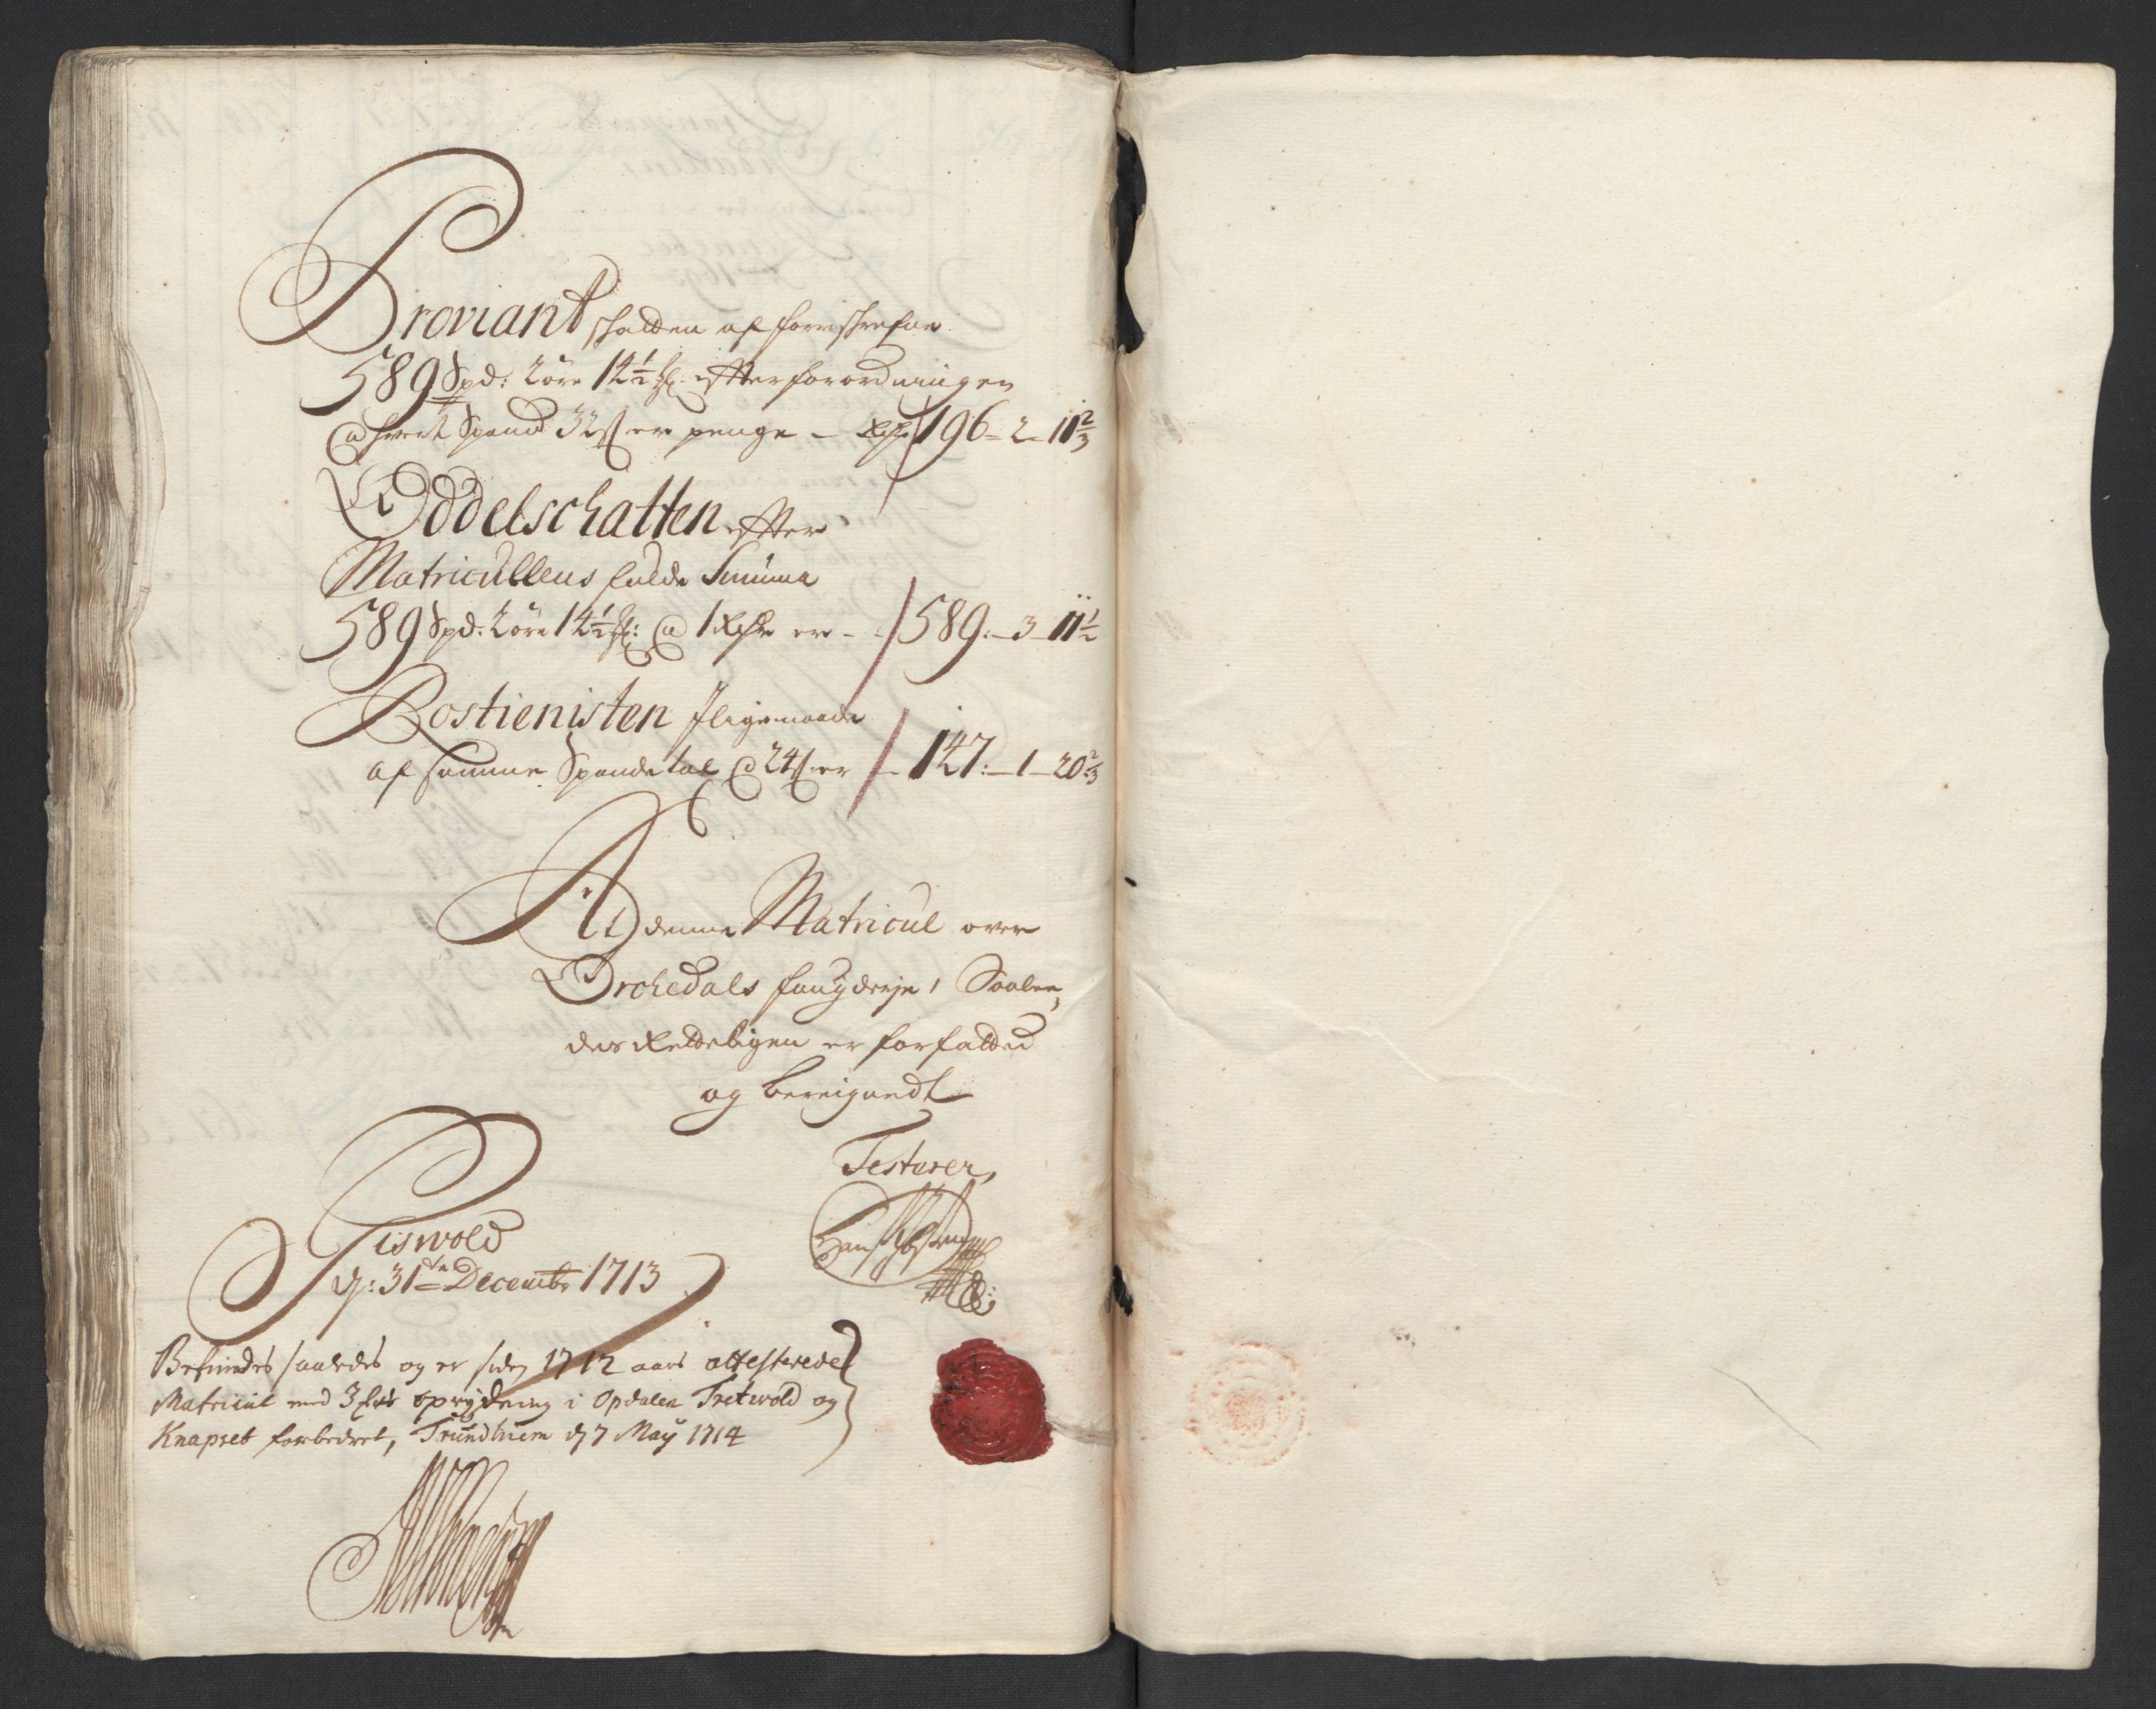 Proviant schatten af forreschrefne
589 Spd: 2 öre 14½ ſl. effter forordningen
@ hvert Spand 32 ß er penge - Rdr 196 - 2 - 11⅔
Oddelschatten effter
Matricullens fulde Summa
589 Spd: 2 öre 14½ ſl: @ 1 Rdr er - 589. - 3 - 11½
Rostienisten Jligemaade
af samme Spandetal @ 24 ß er - 147: - 1 - 20⅔
At denne Matricul over
Orchedals faugderje, Saalee,
des Retteligen er forfatted
og bereignedt
Testerer,
Giswold
d: 31te Decembr 1713
Befindes saaledes og er siden 1712 aars attesterede
Matricul med 3 oprydning i Opdalen Tretwold og
Knapset forbedret, Trundhiem d 7 Maÿ 1714